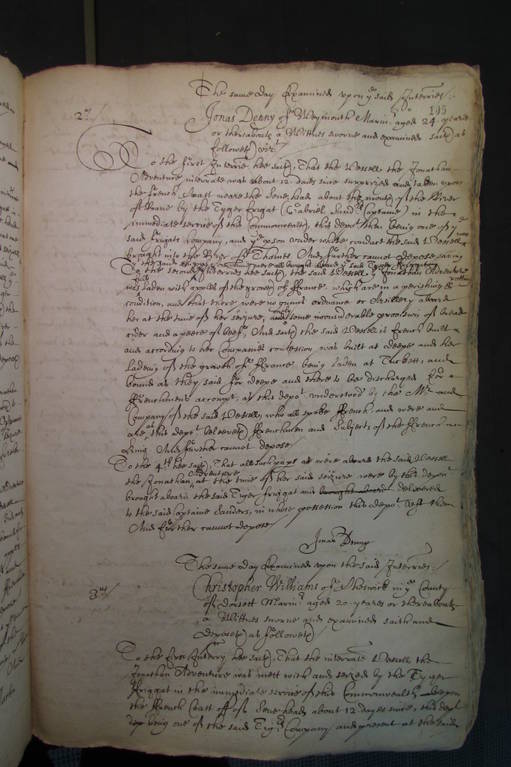 The same day Examined upon ye said Interries.
145
2us
Jonas Denny of Weymouth Marinr aged 24 yeares
or thereabouts a Wittnes sworne and examined saith as
followeth vizt
To the first Interrie hee saith, That the Vessell the Jonathan
Adventure interrate was about 12 dayes since surprized and taken upon
the French Coast neare the Sone head about the mouth of the River
of by the Tyger frigat (Gabriel Sanders Captaine) in the
immediate service of the Commonwealth, this depot then being one of ye
said frigats Company, and ye person under whose conduct the said Vessell was
brought into the River of Thames And further cannot depose saving
To the second Interrie hee saith, the said Vessell the Jonathan Adventure
was laden with apples of the growth of France which are in a perishing
condition, and that there were no gunns ordnance or Artillery aboard
her at the time of her seizure, and some inconsiderable provision of bread
cider and a peece of beefe, And saith the said Vessell is French built
and according to her Companies confession was built at deepe and her
ladeing of the growth of France being laden at and
bound as they said for deepe and there to be discharged for a
Frenchmans accompt as this depot understood by the Mr and
Company of the said Vessell, who all spoke French, and were and
are as this depot beleeveth Frenchmen and Subjects of the French
King And further cannot depose.
To the 4th hee saith, That all such papers as were aboard the said Vessell
the Jonathan Adventure at the time of her said seizure were by this depot
brought aboard the said Tyger frigat and brought aboard delivered
to the said Captaine Sanders, in whose possession this depot left them
And further cannot depose
Jonas Denny
The same day Examined upon the said Interries.
3us
Christopher Williams of in ye County
of dorsett Marinr aged 20 yeares or thereabouts
a Wittnes sworne and examined saith and
deposeth as followeth
To the first Interry hee saith, That the interrate Vessell the
Jonathan Adventure was mett with and seized by the Tyger
Friggat in the immediate service of this Commonwealth upon
the French Coast off of Sone head about 12 dayes since, this depot
being one of the said Tigers Company and present at the said